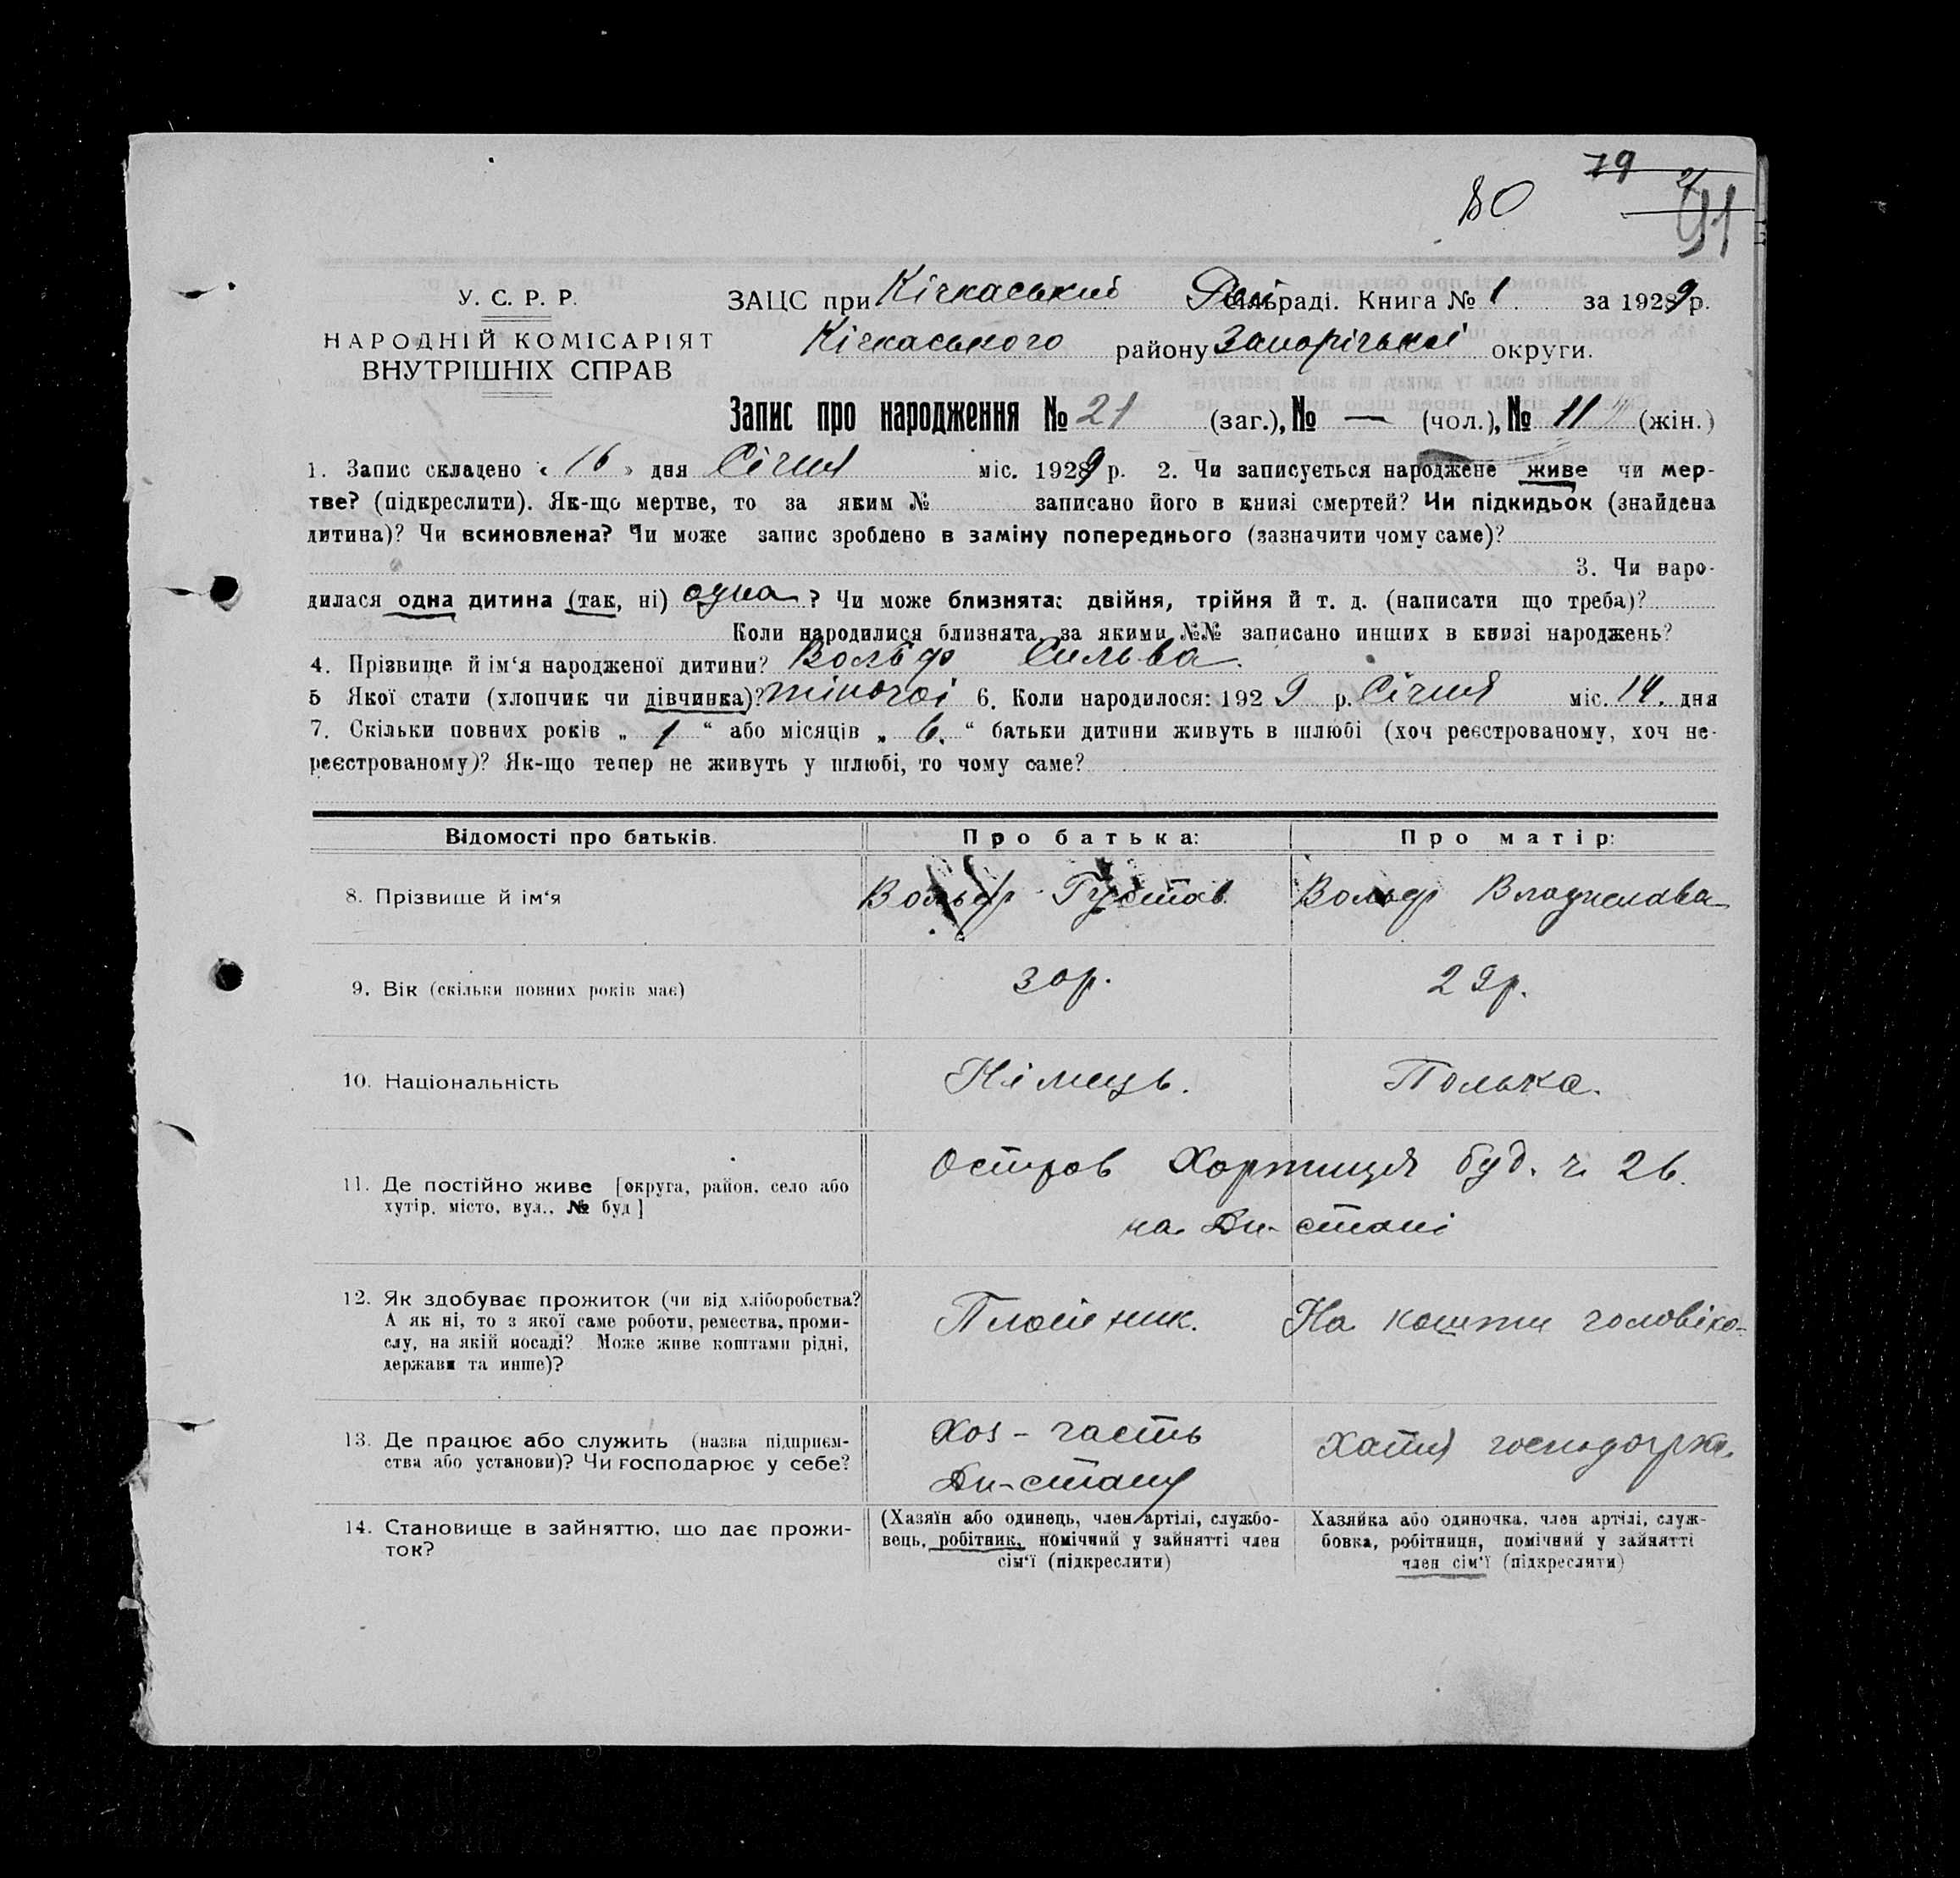 79
21
80
91
У. С. Р. Р.
НАРОДНІЙ КОМІСАРІЯТ
ВНУТРІШНІХ СПРАВ
ЗАЦС при Кічкаський Рай сільраді. Книга № 1 за 1929 р.
Кічкаського району Запорізької округи.
Запис про народження № 21 (заг.), № — (чол.), № 11 (жін.)
1. Запис складено « 16 » дня Січня міс. 1929 р. 2. Чи записується народжене живе чи мер-
тве? (підкреслити). Як-що мертве, то за яким № записано його в книзі смертей? Чи підкидьок (знайдена
дитина)? Чи всиновлена? Чи може запис зроблено в заміну попереднього (зазначити чому саме)?
3. Чи наро-
дилася одна дитина (так, ні) одна ? Чи може близнята: двійня, трійня й т. д. (написати що треба)?
Коли народилися близнята, за якими №№ записано инших в книзі народжень?
4. Прізвище й ім‘я народженої дитини? Вольф Сильва.
5 Якої стати (хлопчик чи дівчинка)? жіночої 6. Коли народилось: 1929 р. Січня міс. 14. дня
7. Скільки повних років „ 1 “ або місяців „ 6. “ батьки дитини живуть в шлюбі (хоч реєстрованому, хоч не-
реєстрованому)? Як-що тепер не живуть у шлюбі, то чому саме?
Відомості про батьків. Про батька: Про матір:
8. Прізвище й ім‘я Вольф Густав Вольф Владислава
9. Вік (скільки повних років має) 30р. 29р.
10. Національність Німець. Полька.
11. Де постійно живе [округа, район, село або
хутір, місто, вул., № буд]
Остров Хортиця буд. ч 26.
на Дн-стані
12. Як здобуває прожиток (чи від хліборобства?
А як ні, то з якої саме роботи, ремества, проми-
слу, на якій посаді? Може живе коштами рідні,
держави та инше)?
На кошти чоловіка
13. Де працює або служить (назва підприєм-
ства або установи)? Чи господарює у себе?
Хоз-часть
Дн-стану
Хатня господарка.
14. Становище в зайняттю, що дає прожи-
ток?
(Хазяїн або одинець, член артілі, службо-
вець, робітник, помічний у зайнятті член
сім‘ї (підкреслити)
Хазяйка або одиночка, член артілі, служ-
бовка, робітниця, помічний у зайнятті
член сім‘ї (підкреслити)